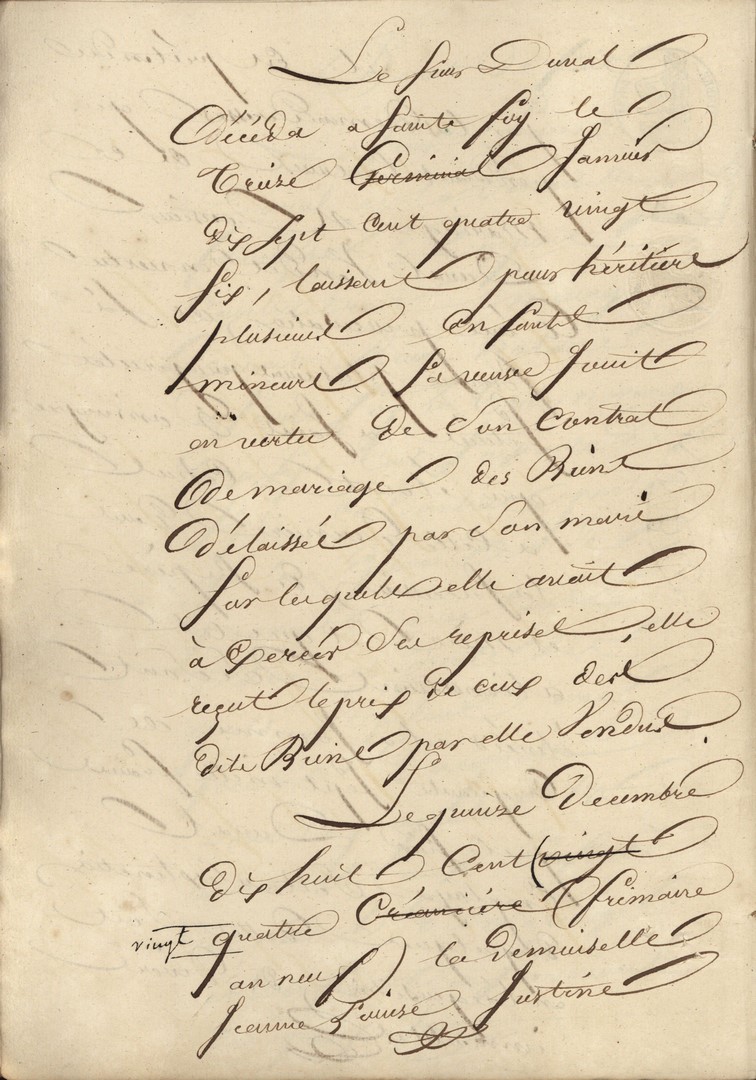 Le sieur Duval
Décéda a Sainte foy le
treize Germinial Janvier
dix sept cent quatre vingt
six, laissant pour héritière
plusieurs enfants
mineurs, Sa veuve Jouit
en vertu de Son Contrat
de mariage des Biens
délaissés par Son mari
Sur lesquels elle avait
à Exercer Ses reprises, elle
reçut le prix de ceux des
dits Biens par elle Vendus
Le quinze Decembre
dix huit Cent (vingt
vingt quatre Créancière (frimaire
an neuf) la demoiselle
Jeanne Louise Justine